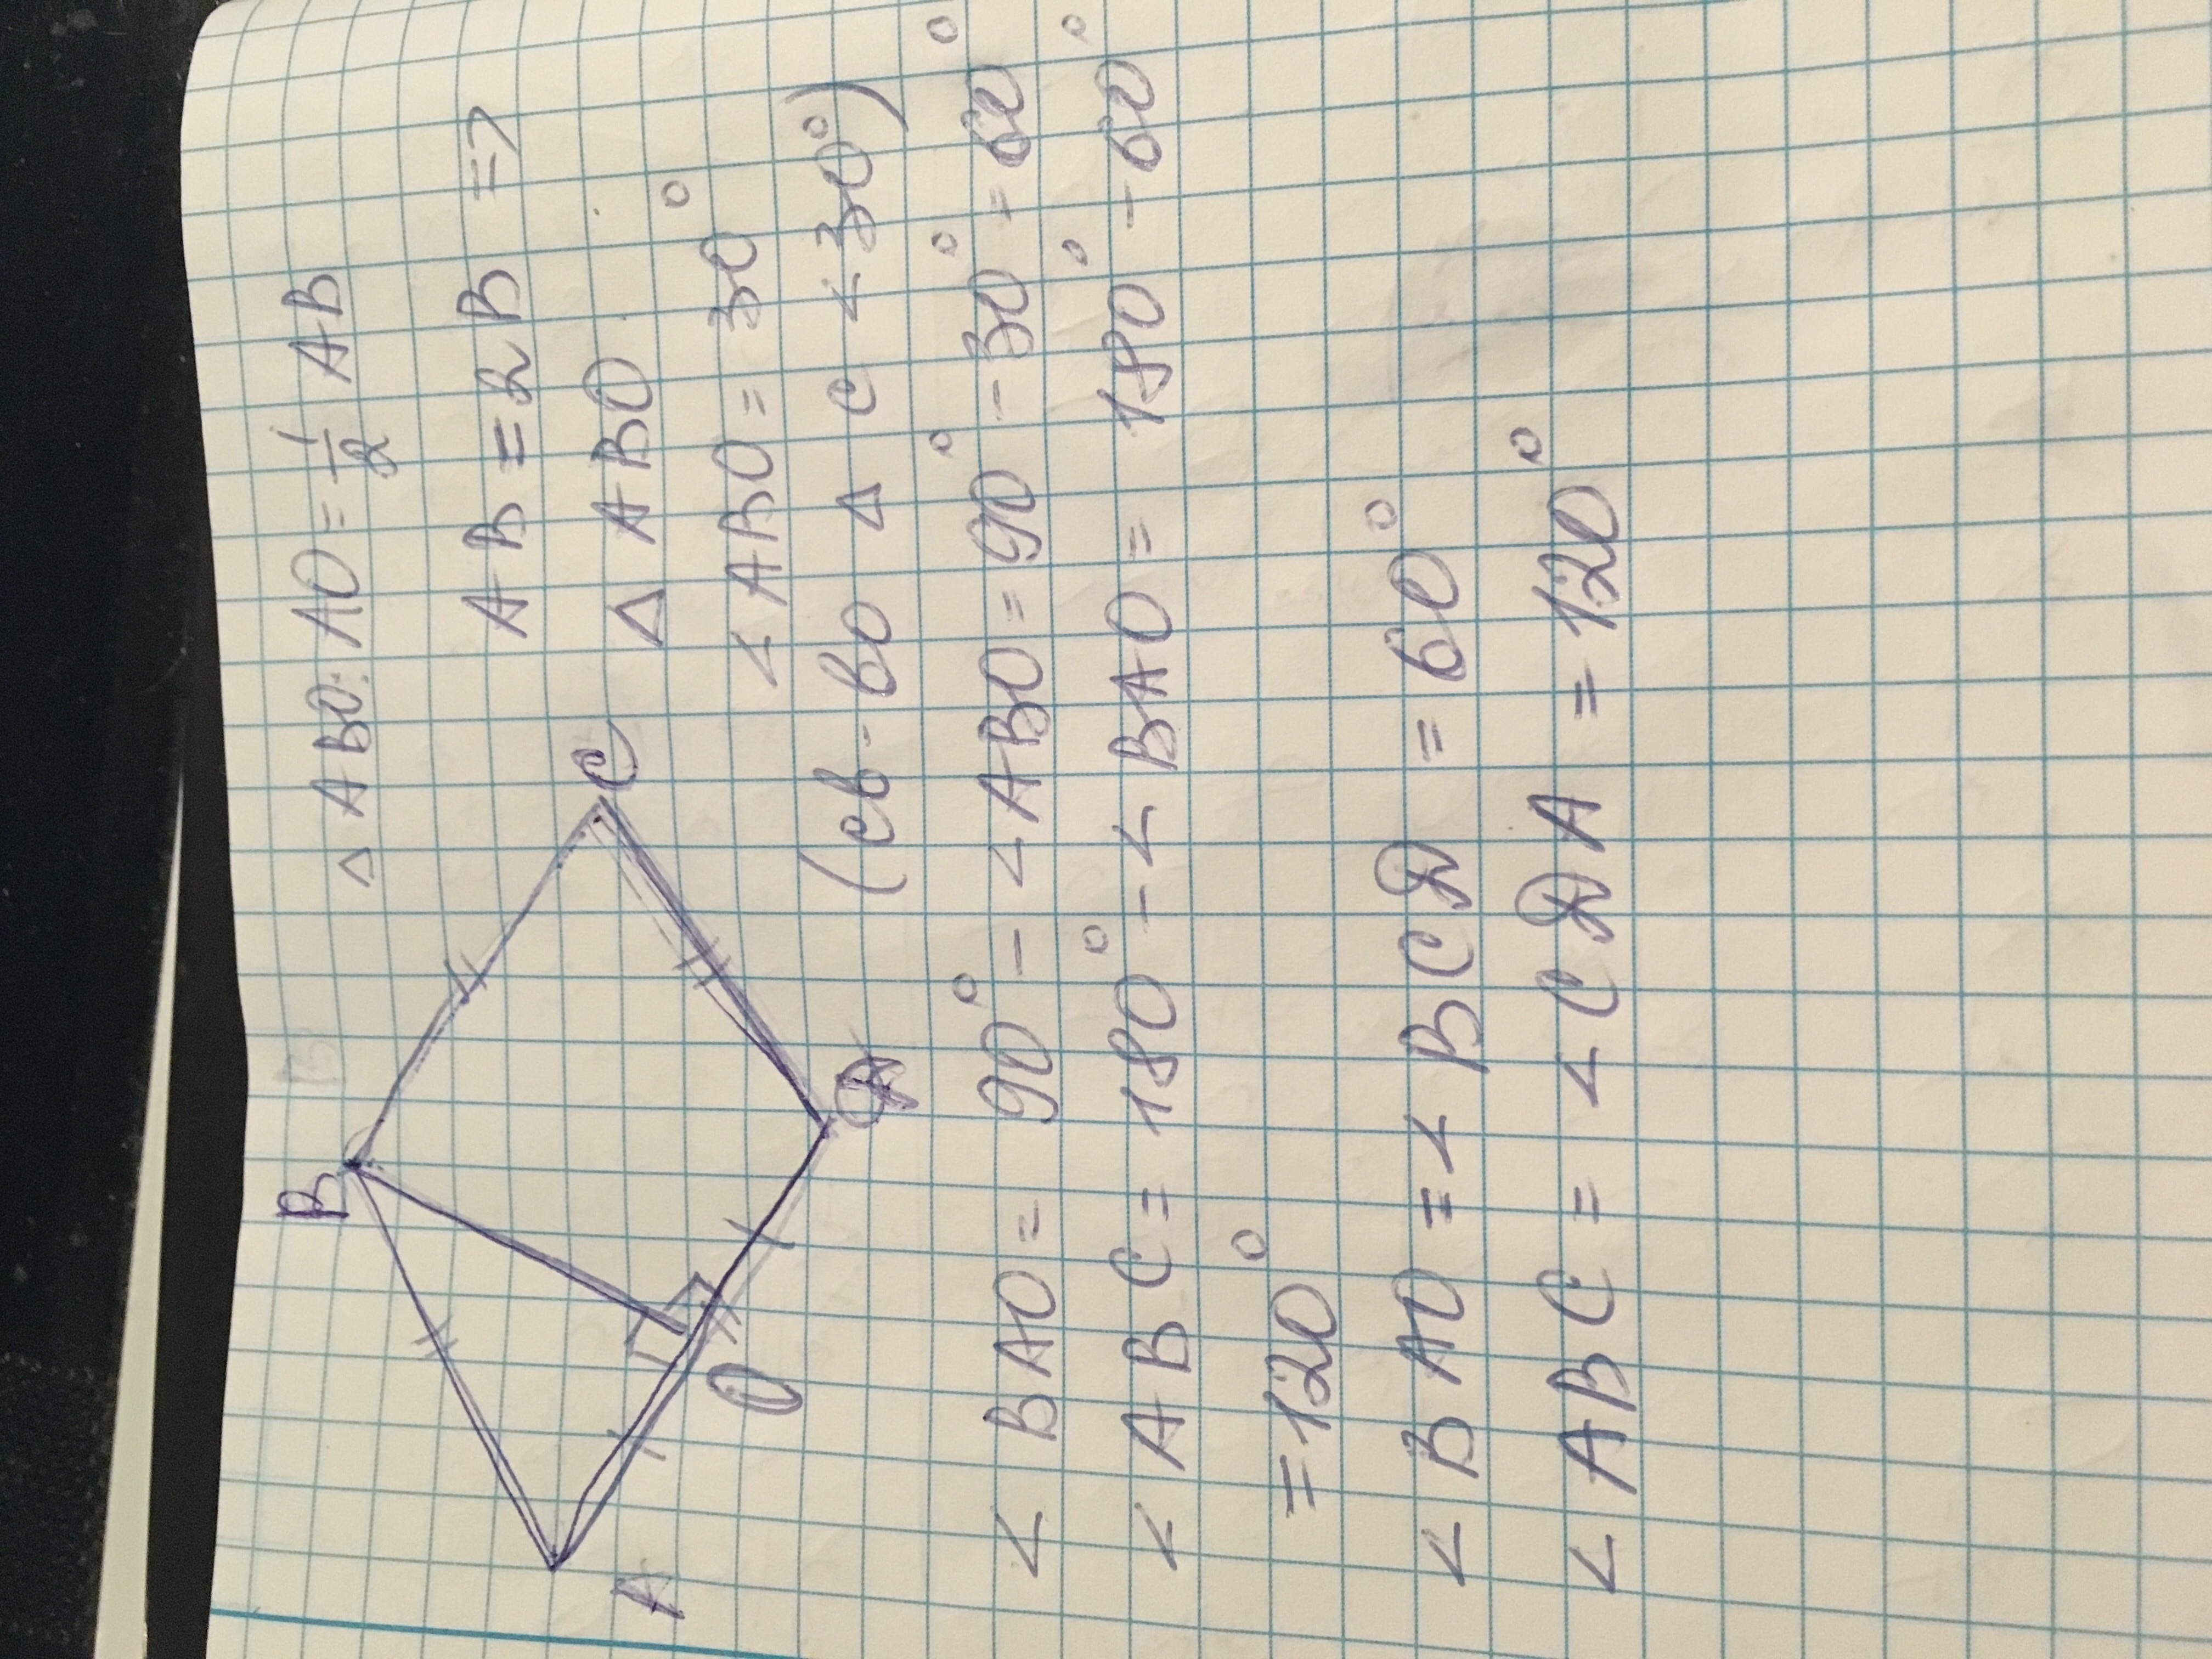 △ ABO: AO = 1/2 AB
AB = 2B =>
△ ABO
∠ ABO = 30°
(св-во △ с ∠ 30°)
B
C
A
O
Д
∠ BAO = 90° - ∠ ABO = 90° - 30° = 60°
∠ ABC = 180° - ∠ BAO = 180° - 60°
= 120°
∠ BAO = ∠ BCД = 60°
∠ ABC = ∠ CДA = 120°